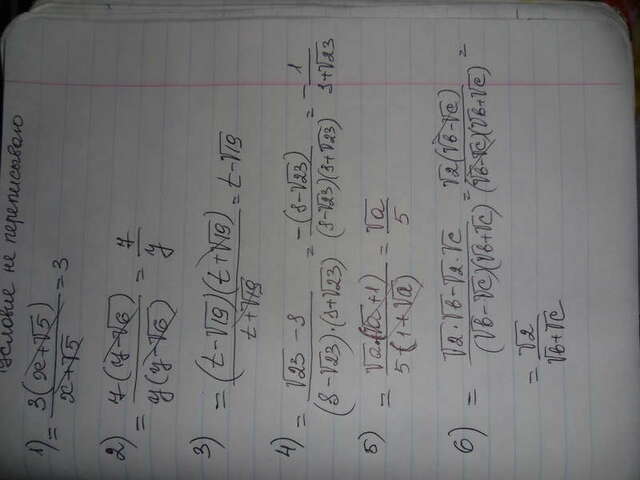 условие не переписываю
1) = 3(x+√5) / x+√5 = 3
2) = 7(y-√6) / y(y-√6) = 7 / y
3) = (t-√19)(t+√19) / t+√19 = t-√19
4) = √23 - s / (s-√23)·(s+√23) = -(s-√23) / (s-√23)(s+√23) = - 1 / s+√23
5) = √a·(√a+1) / 5·(1+√a) = √a / 5
6) = √2·√b-√2·√c / (√b-√c)(√b+√c) = √2(√b-√c) / (√b-√c)(√b+√c) =
= √2 / √b+√c